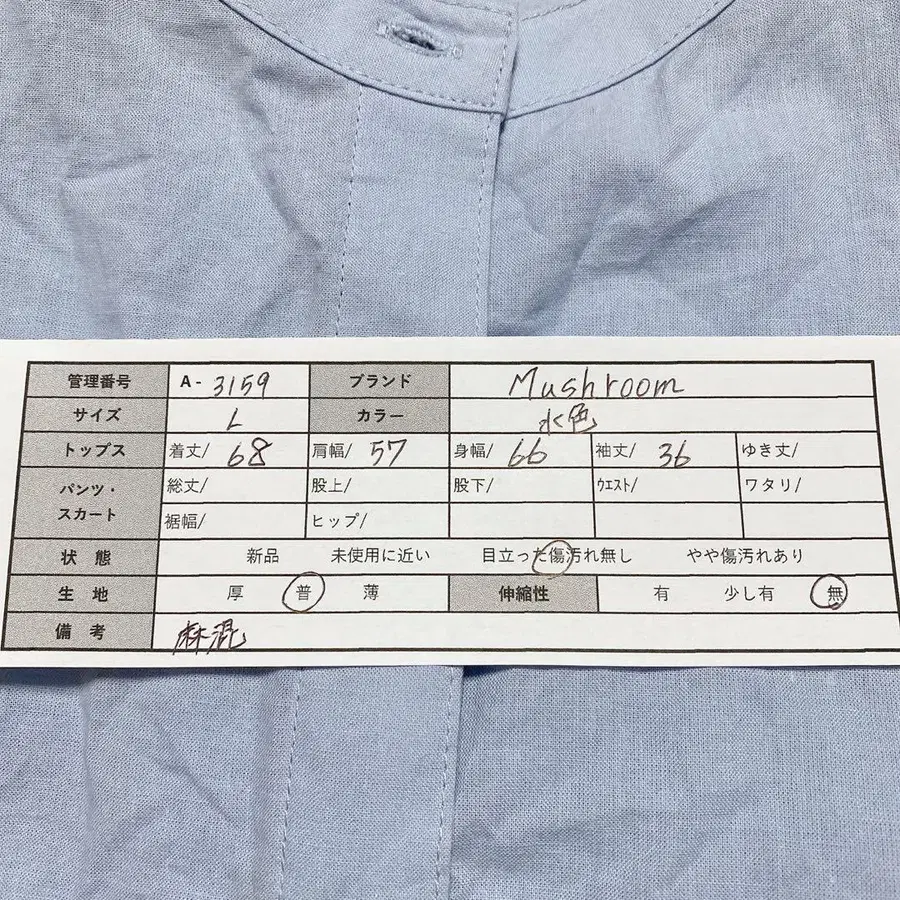 管理番号 A- 3159 ブランド Mushroom
サイズ L カラー 水色
トップス 着丈/ 68 肩幅/ 57 身幅/ 66 袖丈/ 36 ゆき丈/
パンツ・スカート 総丈/ 股上/ 股下/ ウエスト/ ワタリ/
裾幅/ ヒップ/
状態 新品 未使用に近い 目立った傷汚れ無し やや傷汚れあり
生地 厚 普 薄 伸縮性 有 少し有 無
備考 麻混